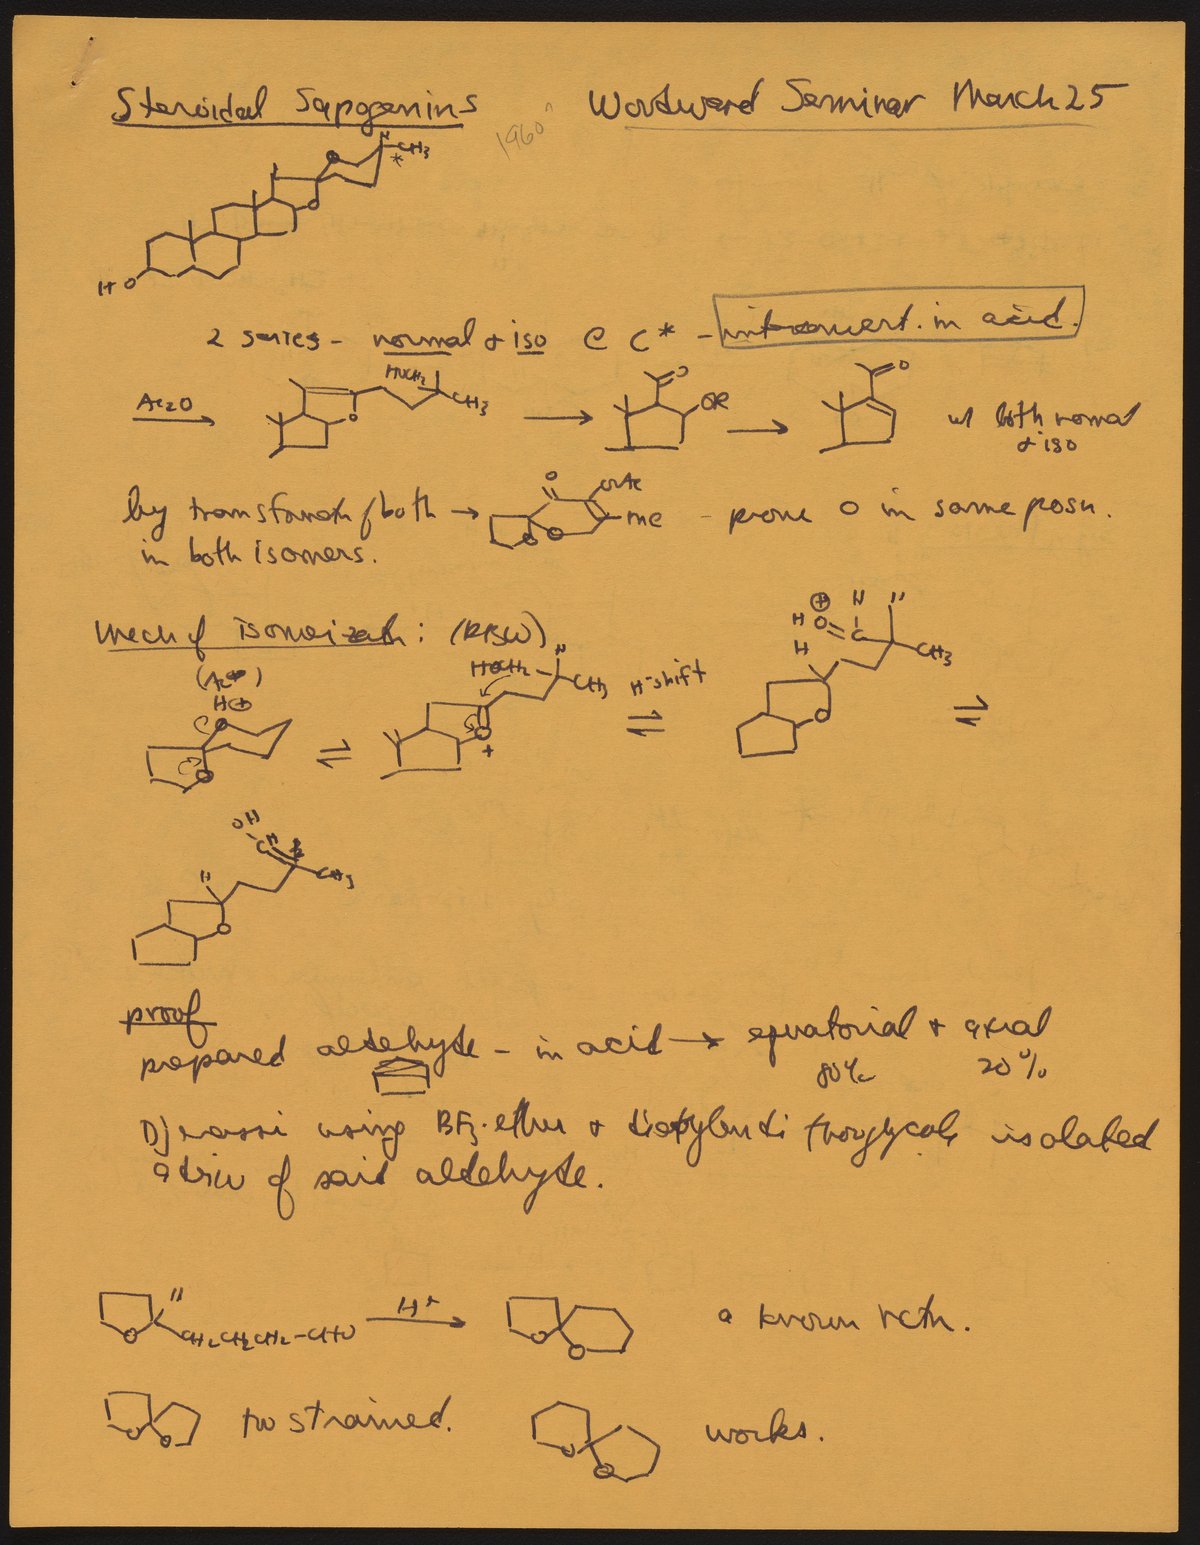 Steroidal Sapogenins Woodward Seminar March 25
1960
H
CH3
*
O
O
HO
2 series - normal & iso @ C* - interconvert. in acid.
Ac2O
HOCH2
CH3
O
O
OR
O
w/ both normal
& iso
by transformatn of both →
in both isomers.
O
OAc
Me
O
O
- prove O in same posn.
Mech of isomerizatn: (RBW)
(Ac⊕)
H⊕
O
O
HOCH2
H
CH3
O
+
H-shift
H
O
⊕
H
C
H
CH3
H
O
OH
C
H
CH3
H
O
proof
prepared aldehyde - in acid → equatorial & axial
80% 20%
Djerassi using BF3·ether & thioglycols isolated
a deriv of said aldehyde.
H
O
CH2CH2CH2-CHO
H+
O
O
a known rctn.
O
O
too strained.
O
O
works.